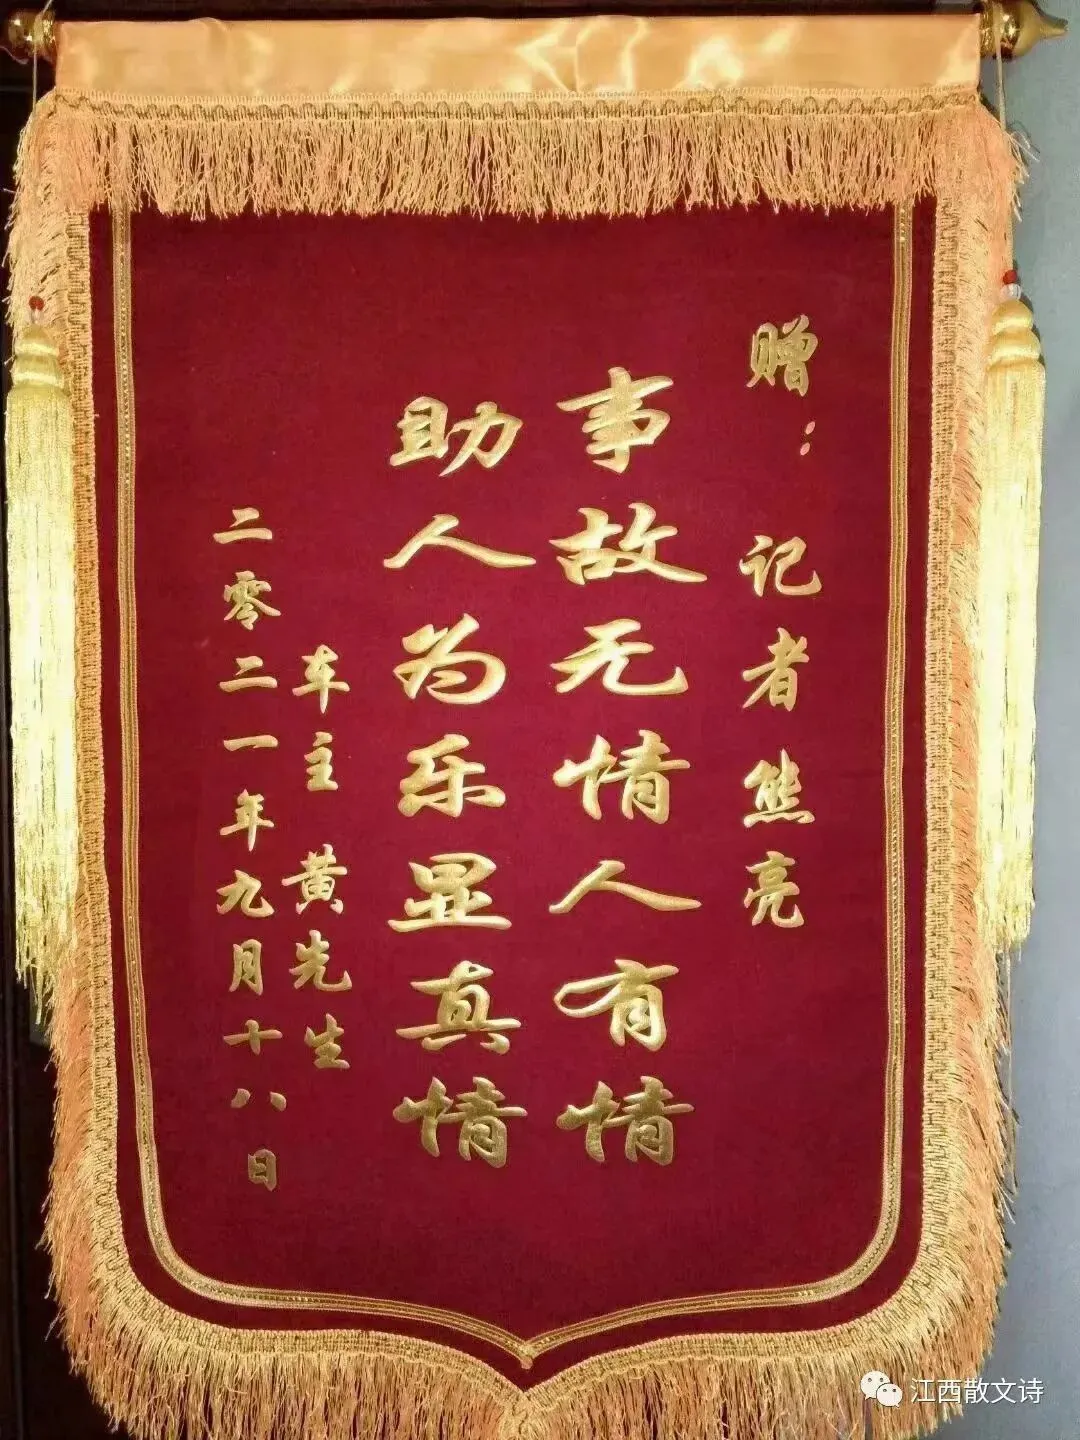 赠：记者熊亮
事故无情人有情
助人为乐显真情
车主 黄先生
二零二一年九月十八日
江西散文诗